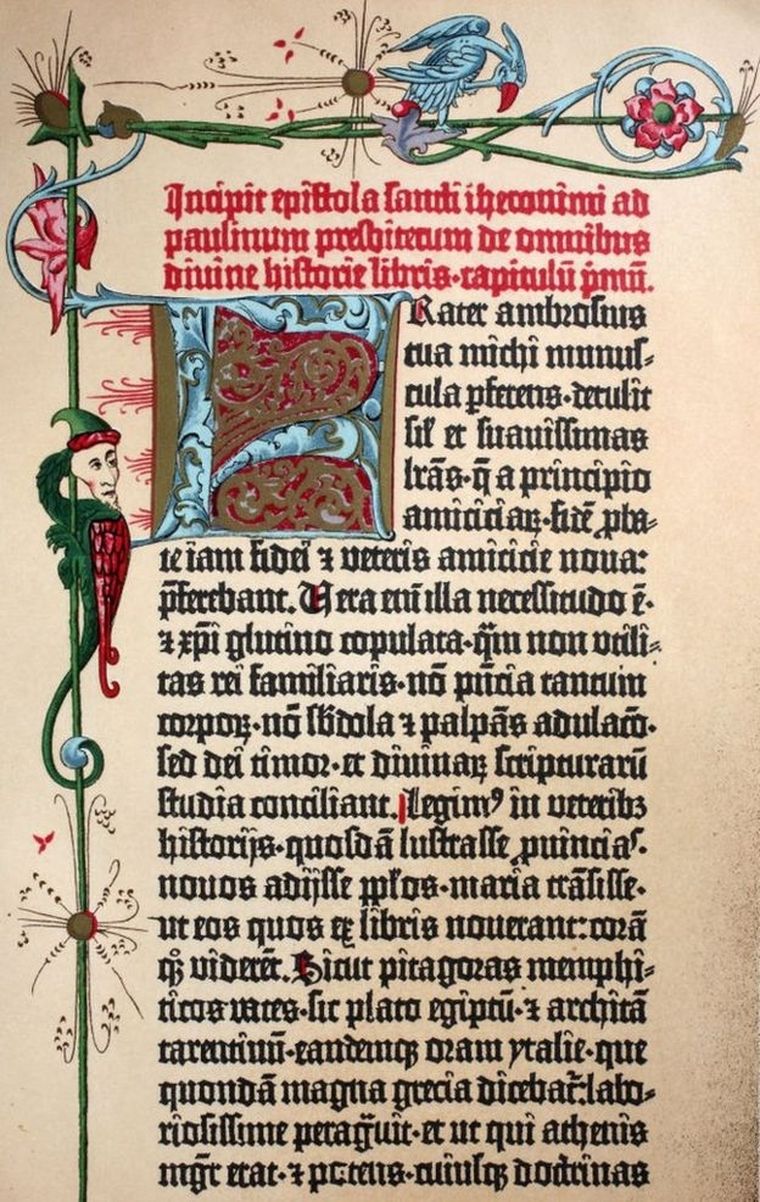 Incipit epistola sancti iheronimi ad
paulinum presbiterum de omnibus
divine historie libris·capitulū p̄mū.
Frater ambrosius
tua michi munus-
cula p̄ferens·detulit
sil̄ et suavissimas
lr̄as·q̄ a principio
amiciciaꝝ·fidē ꝓba-
te iam fidei ⁊ veteris amicicie nova:
p̄ferebant. Vera em̄ illa necessitudo ē·
⁊ xp̄i glutino copulata·qm̄ non utili-
tas rei familiaris·nō p̄ncia tantum
corpoꝝ·nō sb̄dola ⁊ palpās adulacō·
sed dei timor·et divinaꝝ scripturarū
studia conciliant. Legimꝰ in veteribꝫ
historijs·quosdā lustrasse ꝓuincias·
novos adijsse pp̄los·maria trāsisse·
ut eos quos ex libris noverant: corā
qꝫ viderēt. Sicut pitagoras memphi-
ticos vates·sic plato egiptū·⁊ architā
tarentinū·eandemqꝫ oram ytalie·que
quondā magna grecia dicebat̄: labo-
riosissime peragᷓvit·et ut qui athenis
mgr̄ erat·⁊ potens·cuiusqꝫ doctrinas